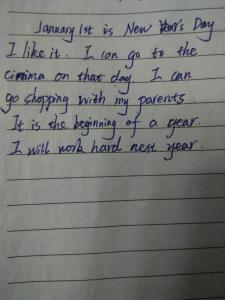 January 1st is New Year's Day
I like it. I can go to the
cinima on that day. I can
go shopping with my parents.
It is the beginning of a year.
I will work hard nest year.